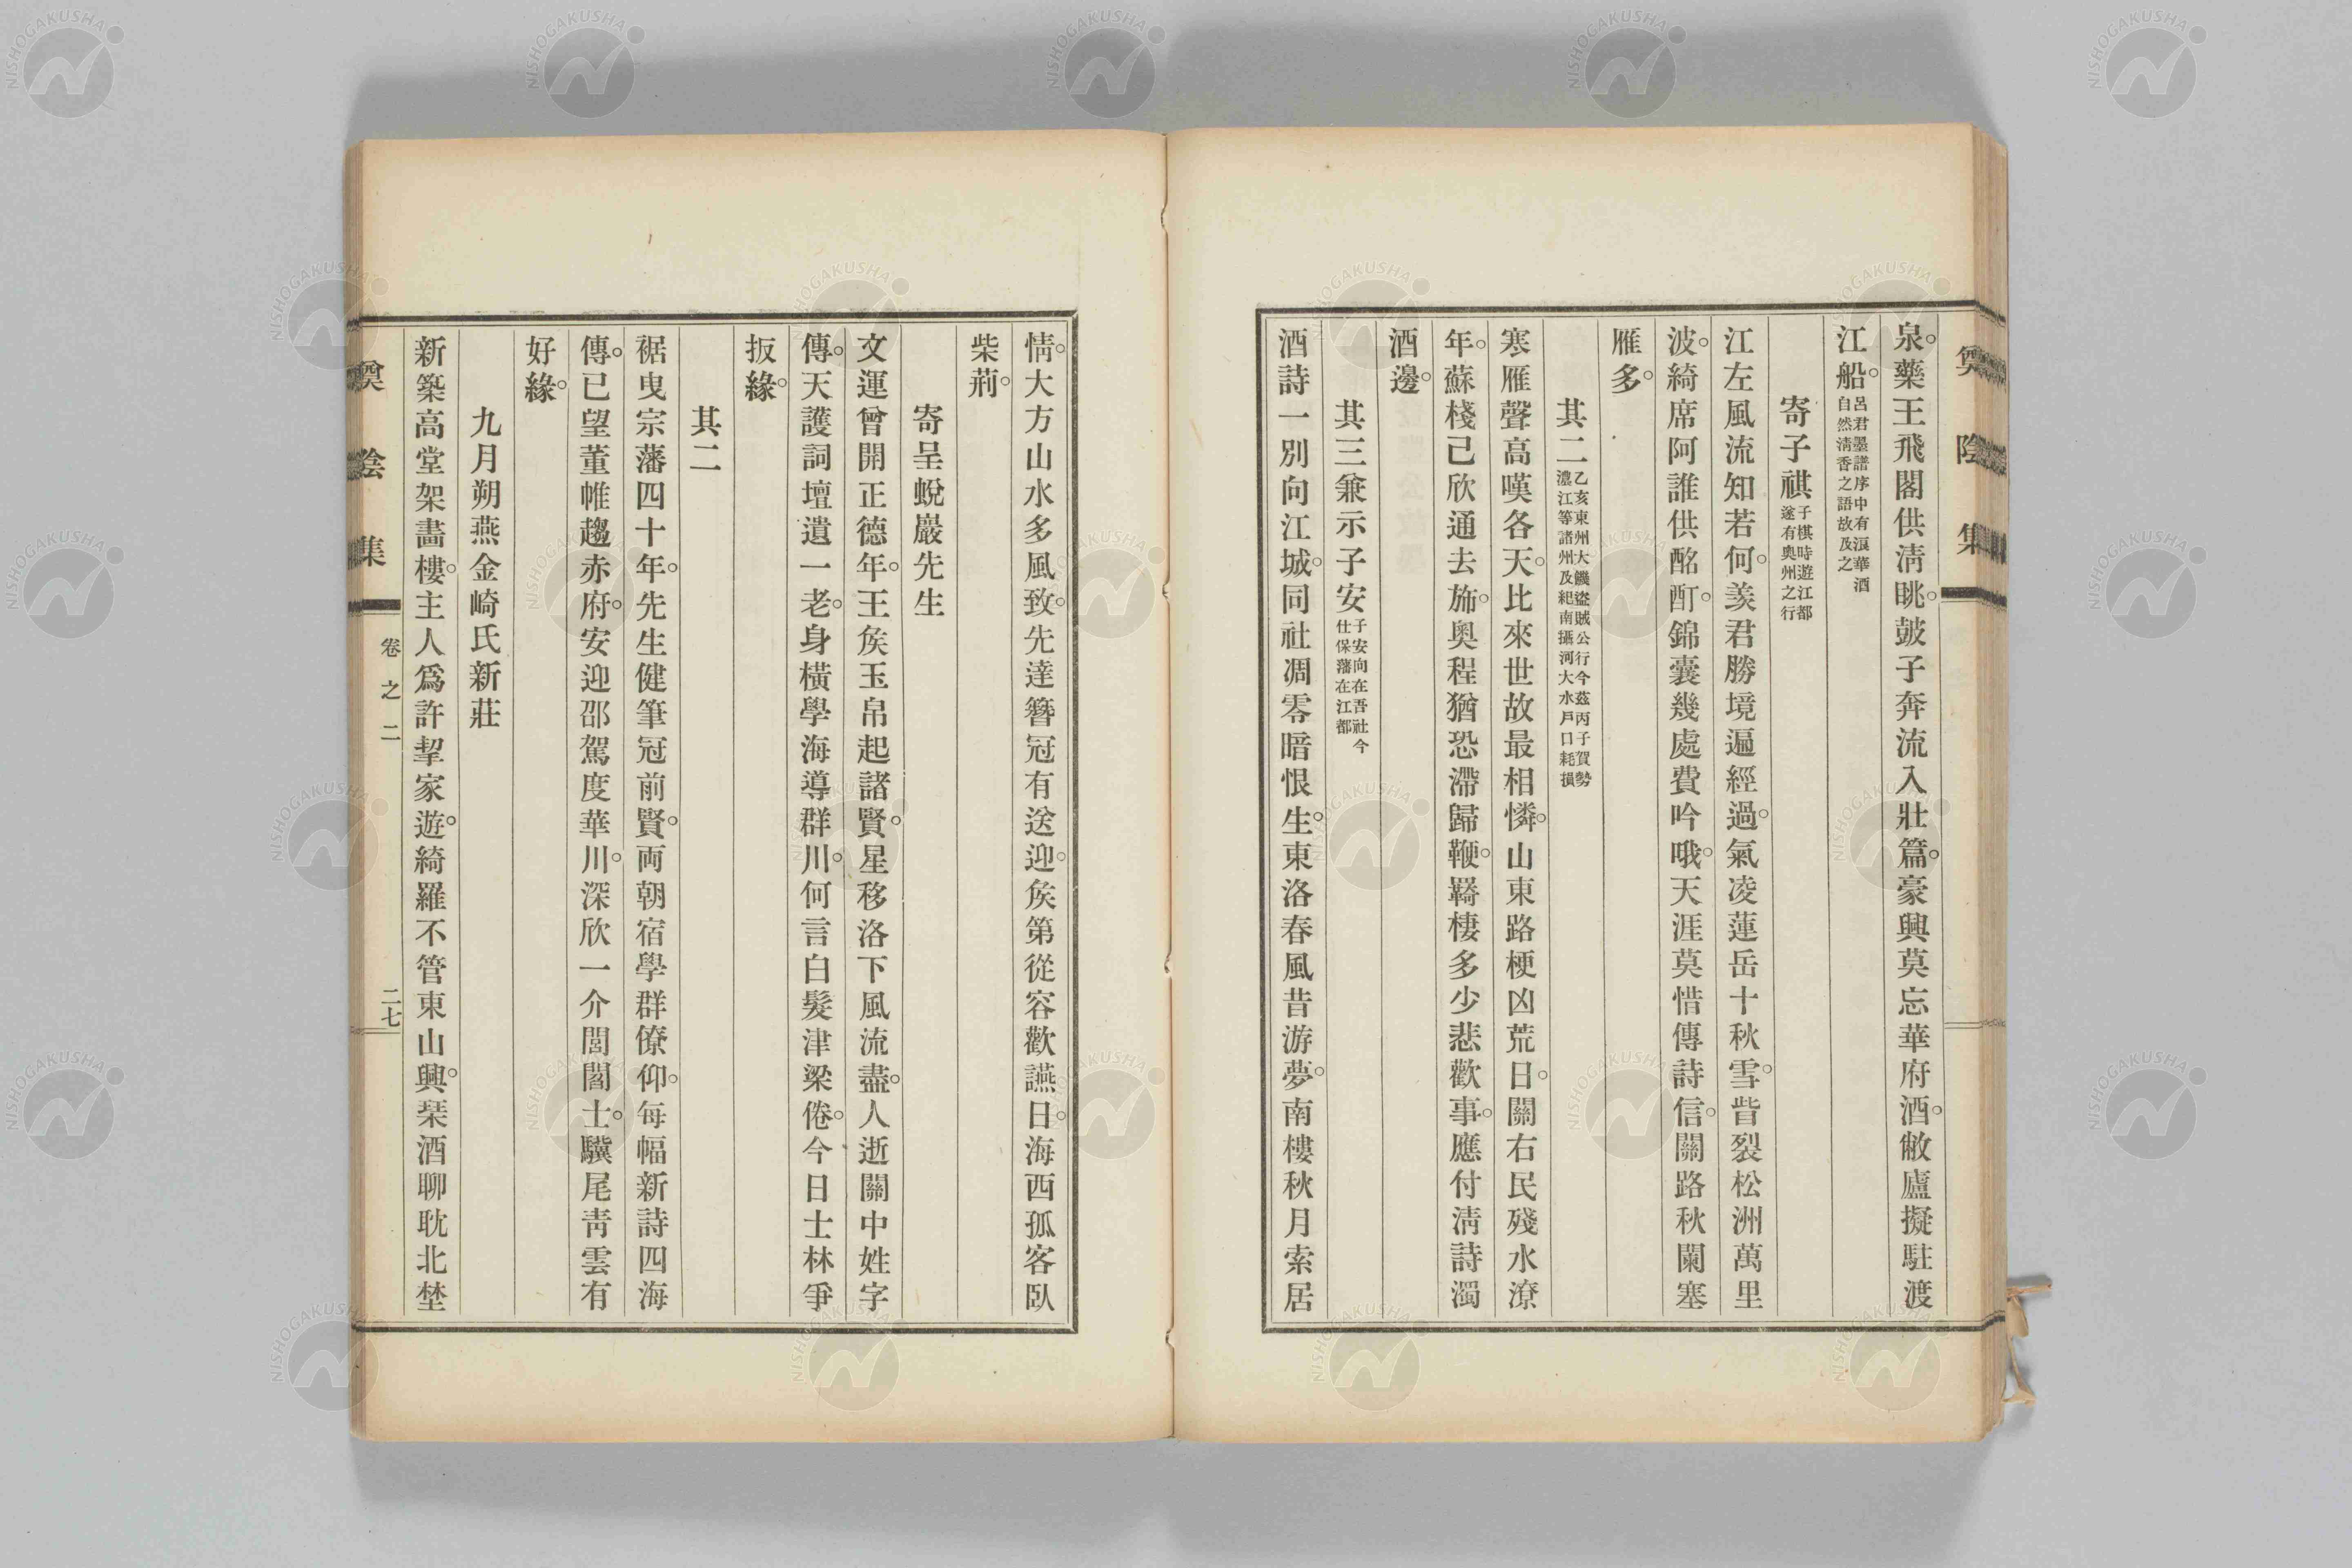 泉。藥王飛閣供淸眺。皷子奔流入壯篇。豪興莫忘華府酒。敝廬擬駐渡
江船。呂君墨譜序中有滇華酒自然淸香之語故及之
寄子祺子棋時遊江都遂有奥州之行
江左風流知若何。羨君勝境遍經過。氣凌蓮岳十秋雪。眥裂松洲萬里
波。綺席阿誰供酩酊。錦囊幾處費吟哦。天涯莫惜傳詩信。關路秋闌塞
雁多。
其二乙亥東州大饑盗賊公行今茲丙子賀勢濃江等諸州及紀南攝河大水戸口耗損
寒雁聲高嘆各天。比來世故最相憐。山東路梗凶荒日。關右民殘水潦
年。蘇棧已欣通去斾。奧程猶恐滯歸鞭。羇棲多少悲歡事。應付淸詩濁
酒邊。
其三兼示子安子安向在吾社今仕保藩在江都
酒詩一別向江城。同社凋零暗恨生。東洛春風昔游夢。南樓秋月索居
情。大方山水多風致。先達簪冠有送迎。矦第從容歡讌日。海西孤客臥
柴荊。
寄呈蛻巖先生
文運曾開正德年。王矦玉帛起諸賢。星移洛下風流盡。人逝關中姓字
傳。天護詞壇遺一老。身橫學海導群川。何言白髮津梁倦。今日士林爭
扳緣。
其二
裾曳宗藩四十年。先生健筆冠前賢。両朝宿學群僚仰。每幅新詩四海
傳。已望董帷趨赤府。安迎邵駕度華川。深欣一介閭閻士。驥尾靑雲有
好緣。
九月朔燕金崎氏新莊
新築高堂架畵樓。主人爲許挈家遊。綺羅不管東山興。琹酒聊耽北埜
奠陰集
奠陰集
卷之二
二七
NISHOGAKUSHA